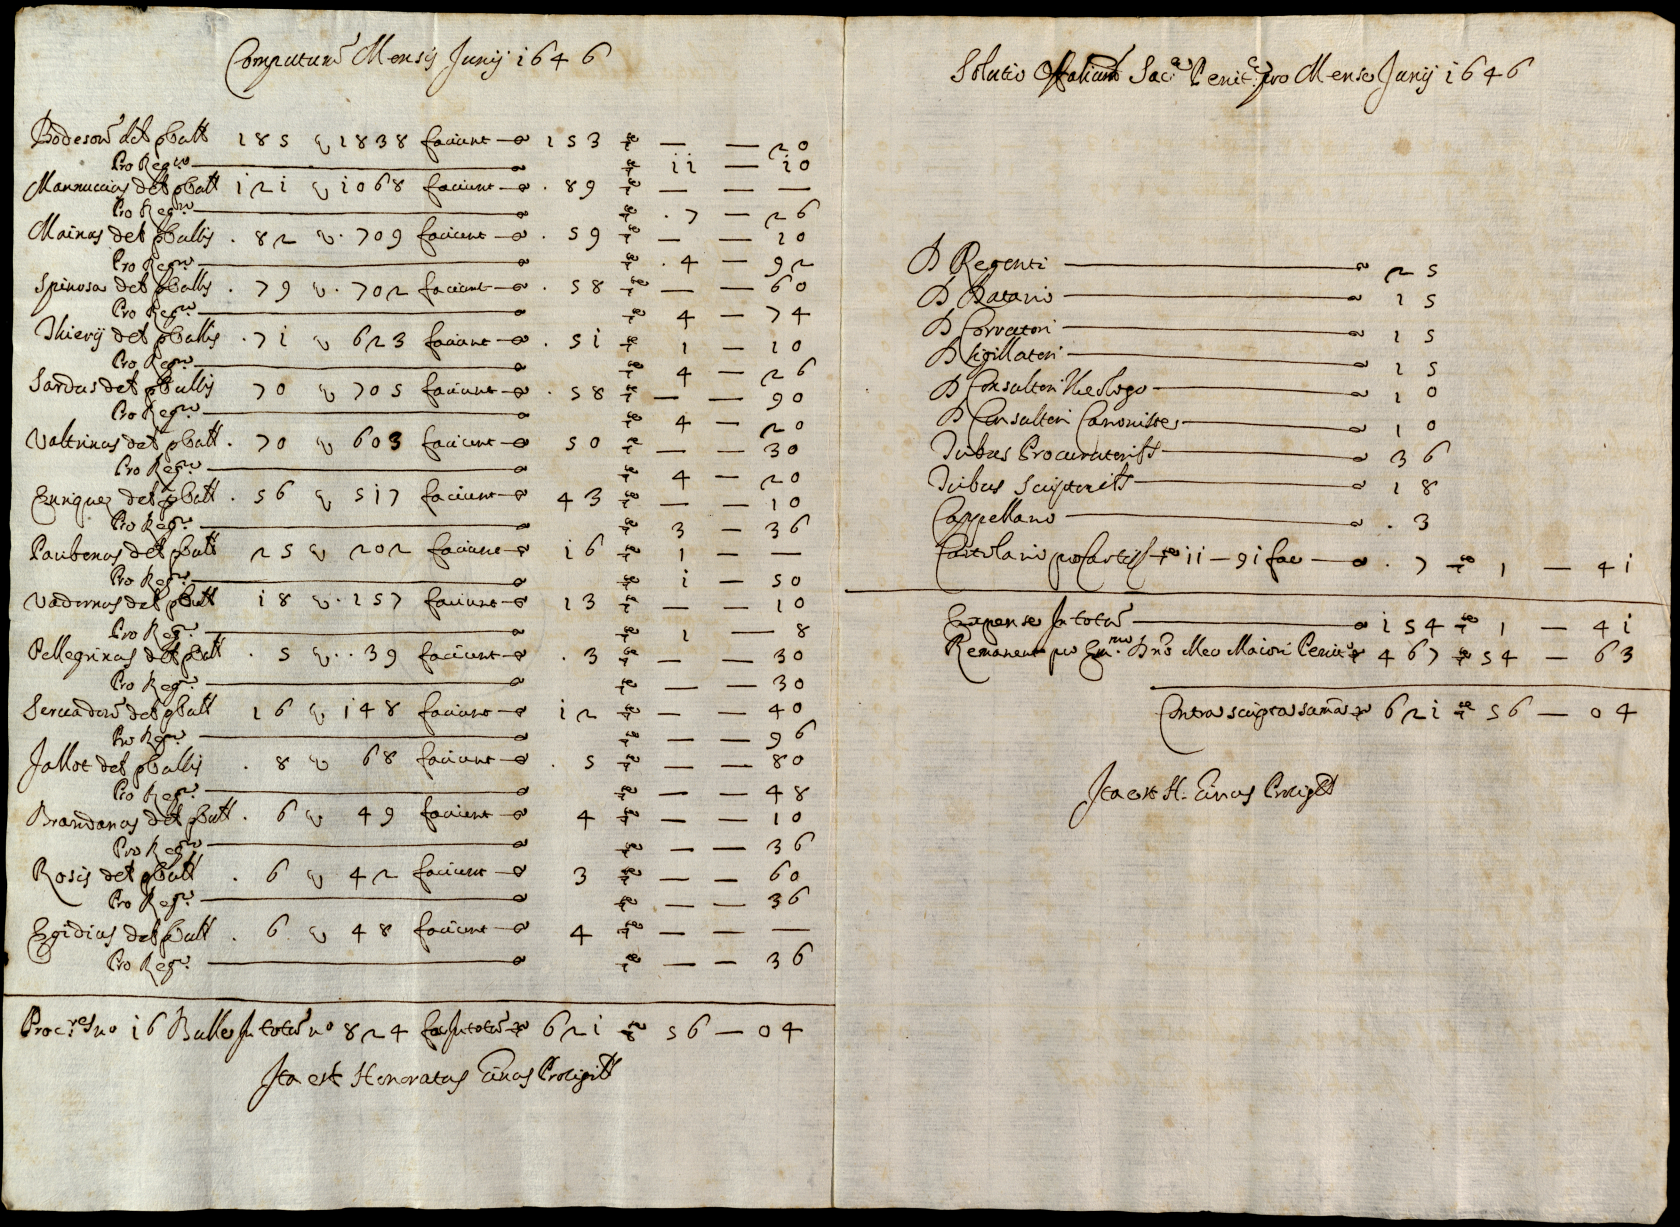 Computum Mensis Junij 1646
Bodeson det pbull 185 q 1838 faciunt 153 — — 20
Pro Reg.ro 11 — 10
Mannucius det pbull 121 q 1068 faciunt . 89 — — —
Pro Reg.ro . 7 — 26
Mainus det pbullis . 82 q . 709 faciunt . 59 — — 10
Pro Reg.ro . 4 — 92
Spinosa det pbullis . 79 q . 702 faciunt . 58 — — 60
Pro Reg.ro 4 — 74
Thierij det pbullis . 71 q 623 faciunt . 51 1 — 10
Pro Reg.ro 4 — 26
Sardus det pbullis 70 q 705 faciunt . 58 — — 90
Pro Reg.ro 4 — 20
Valtrinus det pbull . 70 q 603 faciunt 50 — — 30
Pro Reg.ro 4 — 20
Enriquez det pbull . 56 q 517 faciunt 43 — — 10
Pro Reg.ro 3 — 36
Paubenus det pbull 25 q 202 faciunt 16 1 — —
Pro Reg.ro 1 — 50
Vadornus det pbull 18 q . 157 faciunt 13 — — 10
Pro Reg.ro 1 — 8
Pellegrinus det pbull . 5 q . . 39 faciunt . 3 — — 30
Pro Reg.ro — — 30
Seruador det pbull 16 q 148 faciunt 12 — — 40
Pro Reg.ro — — 96
Jallot det pbullis . 8 q 68 faciunt . 5 — — 80
Pro Reg.ro — — 48
Brandanus det pbull . 6 q 49 faciunt 4 — — 10
Pro Reg.ro — — 36
Rosis det pbull . 6 q 42 faciunt 3 — — 60
Pro Reg.ro — — 36
Egidius det pbull . 6 q 48 faciunt 4 — — —
Pro Reg.ro — — 36
Proc.res no 16 Bulle In totum no 824 fac In totum 621 56 — 04
Ita est Honoratus Einus Prosigill
Solutio Offitialium Sac.ae Penit.ae pro Mense Junij 1646
D Regenti 25
D Datario 15
D Correctori 15
D Sigillatori 15
D Consultori Theologo 10
D Consultori Canoniste 10
Duibus Procuratorib 36
Duibus Scriptorib 18
Cappellano . 3
Cartulario pro Cartis 11 — 91 fac . 7 1 — 41
Expense In totum 154 1 — 41
Remanent pro Em.mo Dno Meo Maiori Penit.o 467 54 — 63
Contrascripta summa 621 56 — 04
Ita est H. Einus Prosigill